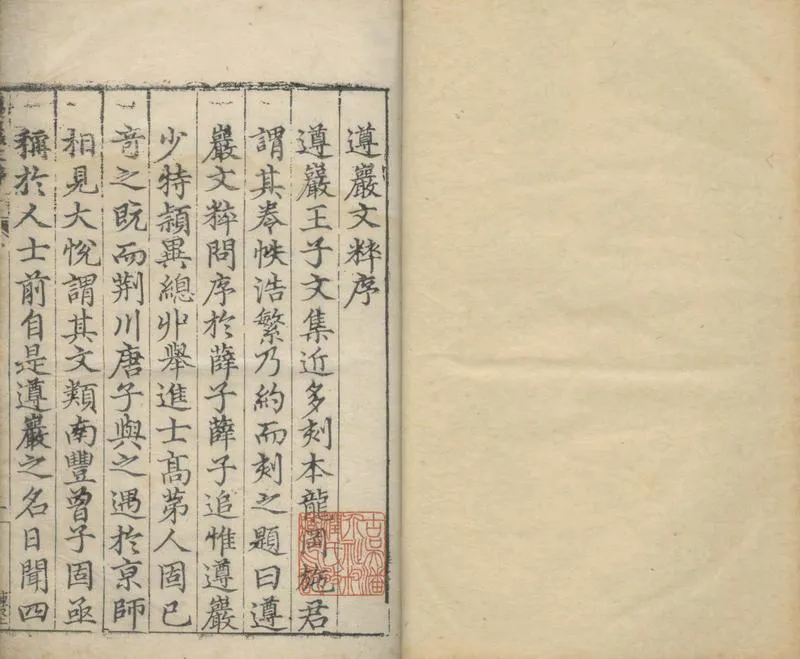 遵巖文粹序
遵巖王子文集近多刻本龍岡施君
謂其卷帙浩繁乃約而刻之題曰遵
巖文粹問序於薛子薛子追惟遵巖
少特穎異總丱舉進士高第人固已
奇之旣而荆川唐子與之遇於京師
相見大悅謂其文類南豐曾子固亟
稱於人士前自是遵巖之名日聞四